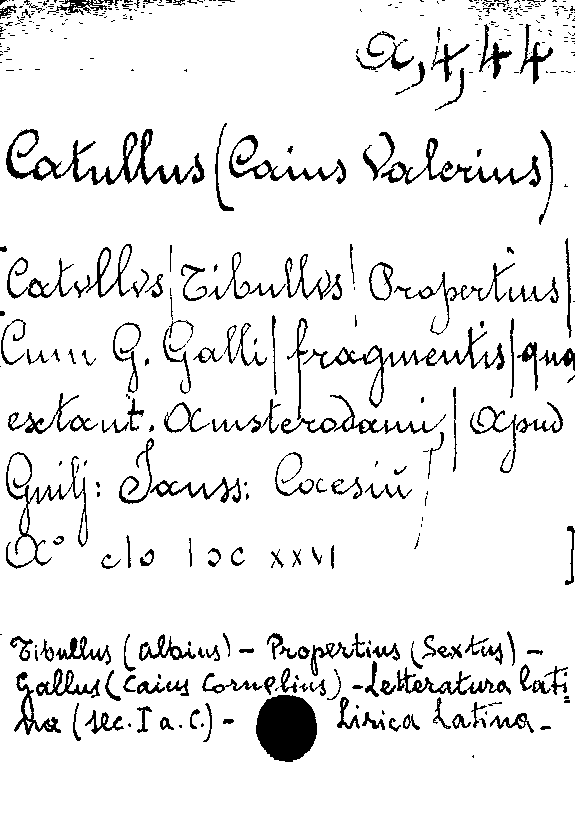 α, 4, 44
Catullus (Caius Valerius)
Catvllvs | Tibullvs | Propertius |
Cum G. Galli | fragmentis | qua
extant. Amsterodami, | Apud
Guilj: Janss: Caesiū /
A° c|ɔ |ɔc xxvı ]
Tibullus (Albius) - Propertius (Sextus) -
Gallus (Caius Cornelius) - Letteratura lati=
na (sec. I a. C.) - Lirica Latina -